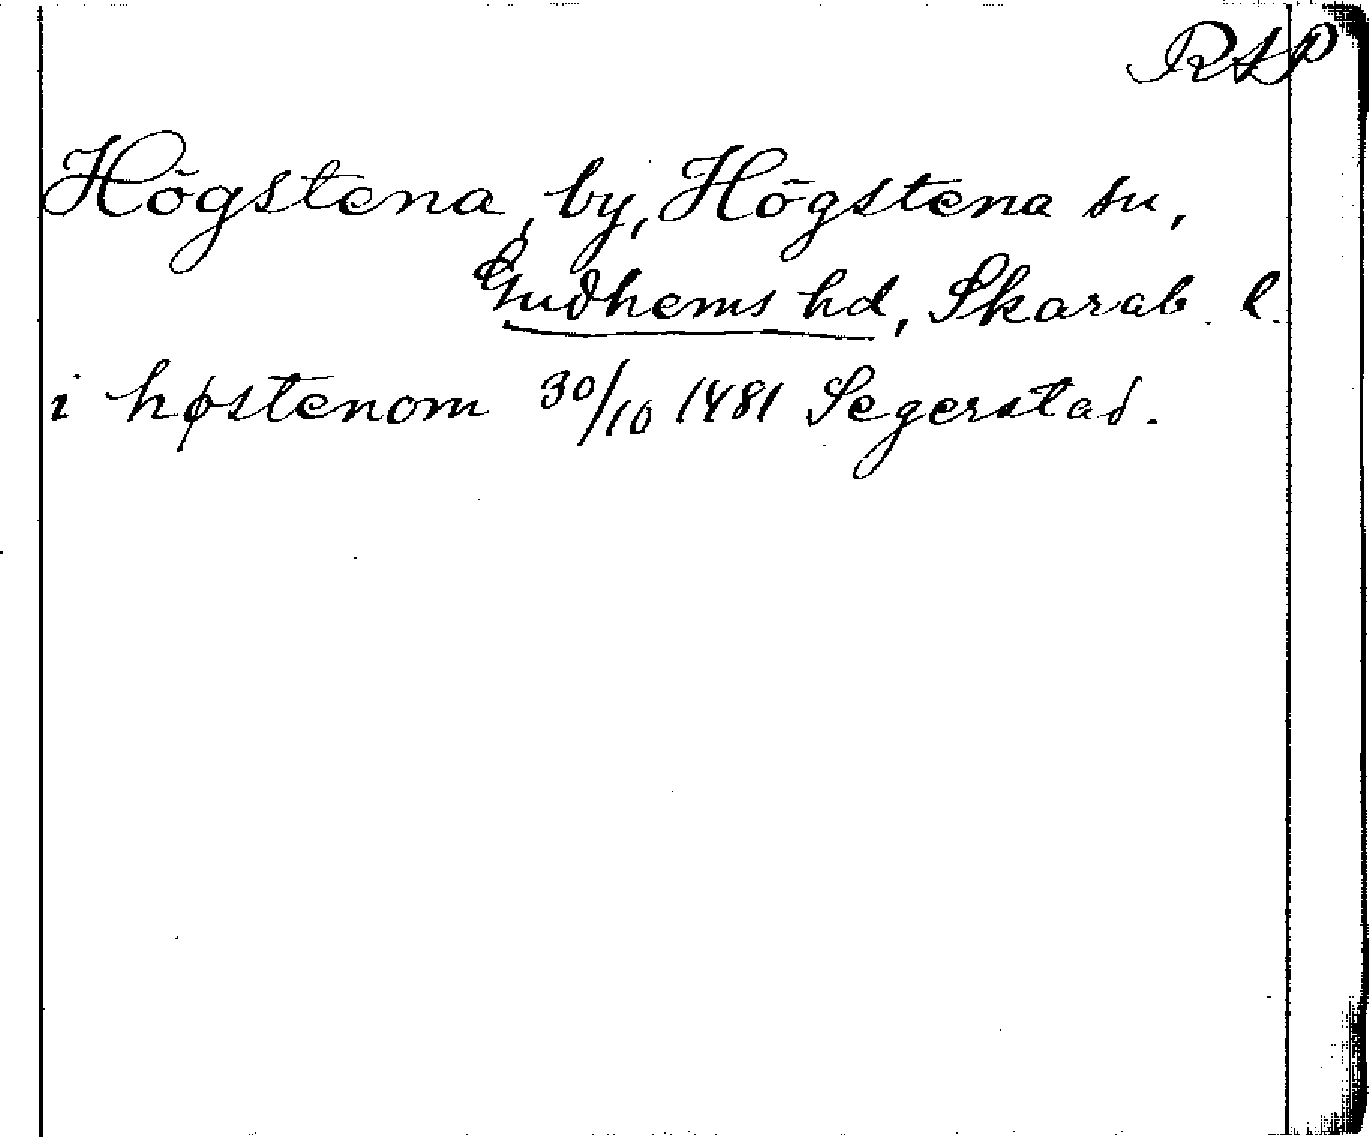 RAP
Högstena, by, Högstena sn,
Gudhems hd, Skarab. l.
i høstenom 30/10 1481 Segerstad.